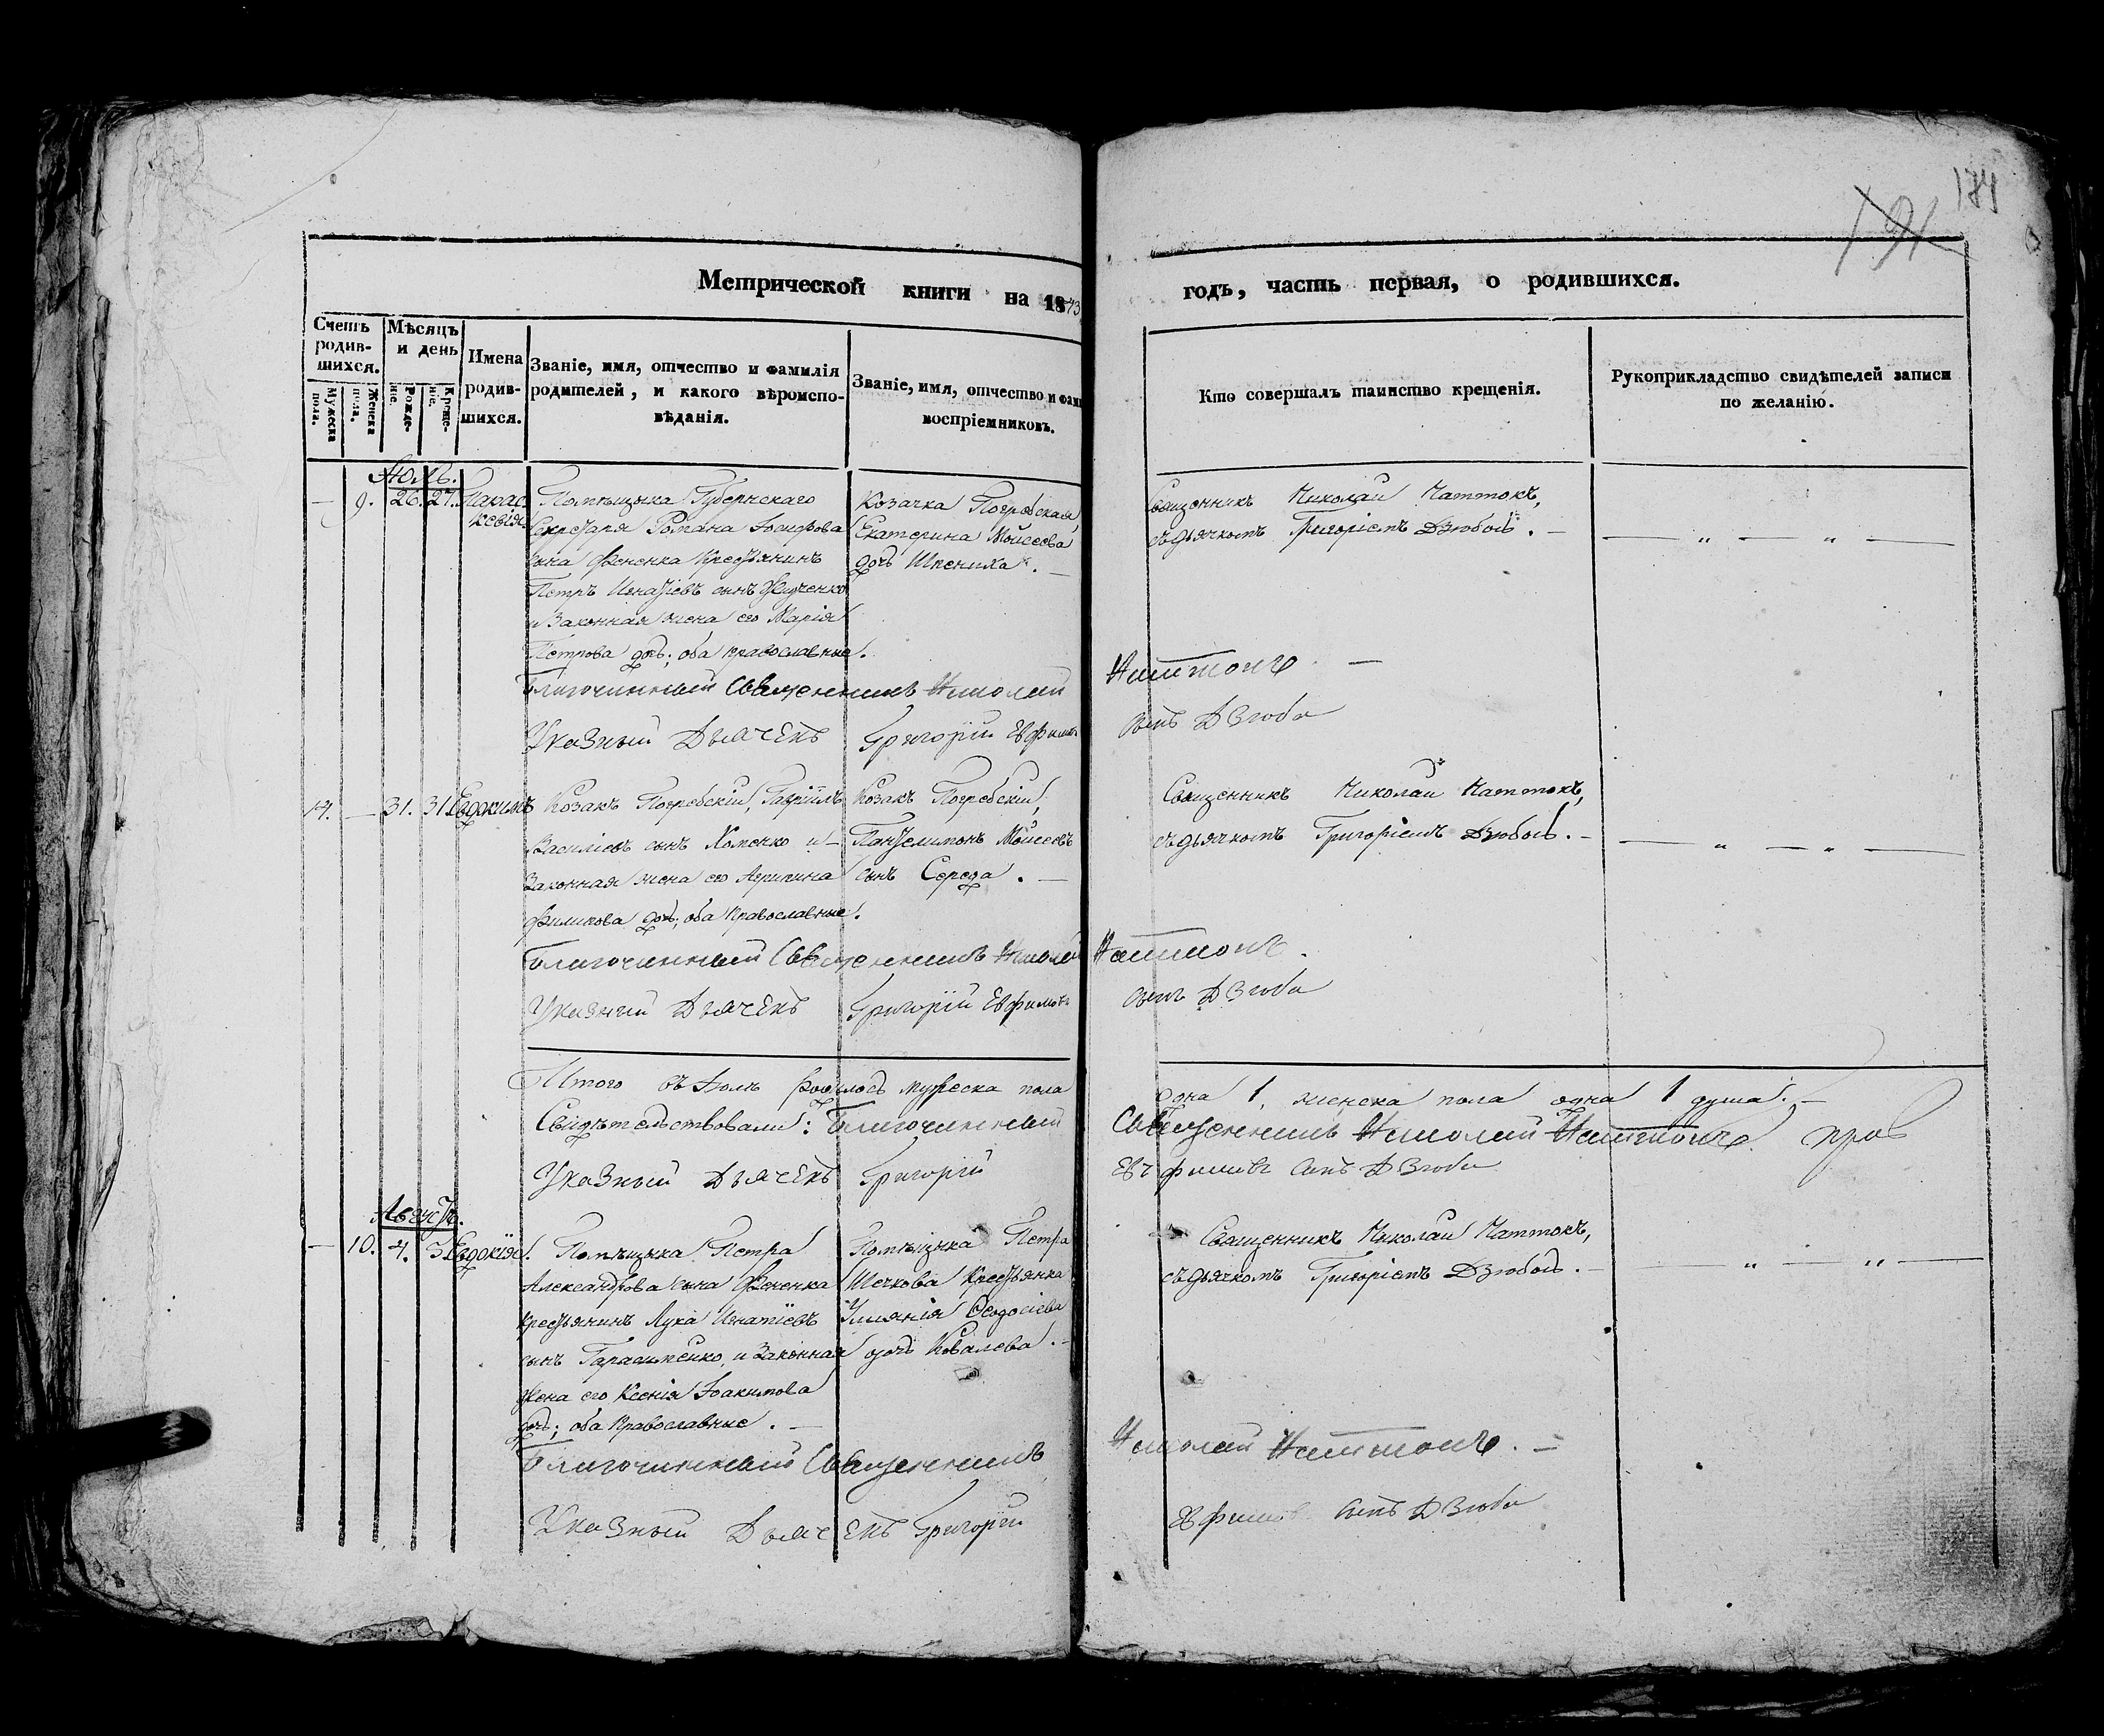 174
191
Метрической книги на 1843
годъ, часть первая, о родившихся.
Счетъ родив-шихся.
Мужеска пола.
Женска пола.
Мѣсяцъ и день
Рожде-нiе.
Креще-нiе.
Имена родив-шихся.
Званіе, имя, отчество и фамилія
родителей, и какого вѣроиспо-
вѣданія.
Званіе, имя, отчество и фами
воспріемниковъ.
Кто совершалъ таинство крещенія.
Рукоприкладство свидѣтелей записи
по желанію.
Іюль.
— 9. 26. 27. Парас-
кевія.
Помѣщика Губернскаго
Секретаря Романа Іосифова
сына Фененка Крестьянинъ
Петръ Игнатіевъ сынъ
и Законная жена его Марія
Петрова дочь; оба православные.
Козачка Погребская
Екатерина Моисеева
дочь Шпениха. —
Священникъ Николай Наттокъ,
съ дьячкомъ Григоріемъ Дзюбою. —
— „ — „ —
Благочинный Священникъ Николай Наттокъ —
Указный Дьячекъ Григорій Евфимовъ сынъ Дзюба
14. — 31. 31. Евдокимъ
Козакъ Погребскій, Гавріилъ
Василіевъ сынъ Хоменко и —
Законная жена его Агрипина
Филипова дочь; оба Православные.
Козакъ Погребскій,
Пантелимонъ Моисеевъ
сынъ Середа. —
Священникъ Николай Наттокъ,
съ дьячкомъ Григоріемъ Дзюбою. —
— „ — „ —
Благочинный Священникъ Николай Наттокъ.
Указный Дьячекъ Григорій Евфимовъ сынъ Дзюба
Итого въ Іюлѣ родилось мужеска пола одна 1, женска пола одна 1 душа. —
Свидѣтельствовали: Благочинный Священникъ Николай Наттокъ.
Указный Дьячекъ Григорій Евфимовъ сынъ Дзюба
Августъ.
— 10. 4. 5. Евдокія.
Помѣщика Петра
Александрова сына Фененка
Крестьянинъ Лука Игнатіевъ
сынъ Герасименко, и Законная
жена его Ксенія Іоакимова
дочь; оба Православные. —
Помѣщика Петра
Шечкова Крестьянка
Уліянія Ѳеодосіева
дочь Ковалева. —
Священникъ Николай Наттокъ,
съ дьячкомъ Григоріемъ Дзюбою. —
— „ — „ —
Благочинный Священникъ Николай Наттокъ. —
Указный Дьячекъ Григорій Евфимовъ сынъ Дзюба